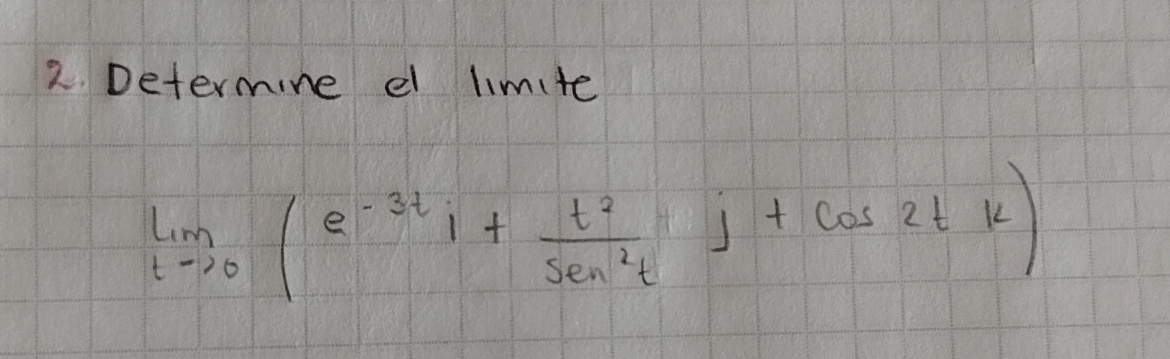 2. Determine el limite
lim t->0 ( e^-3t i + t^2 / sen^2 t j + cos 2t k )